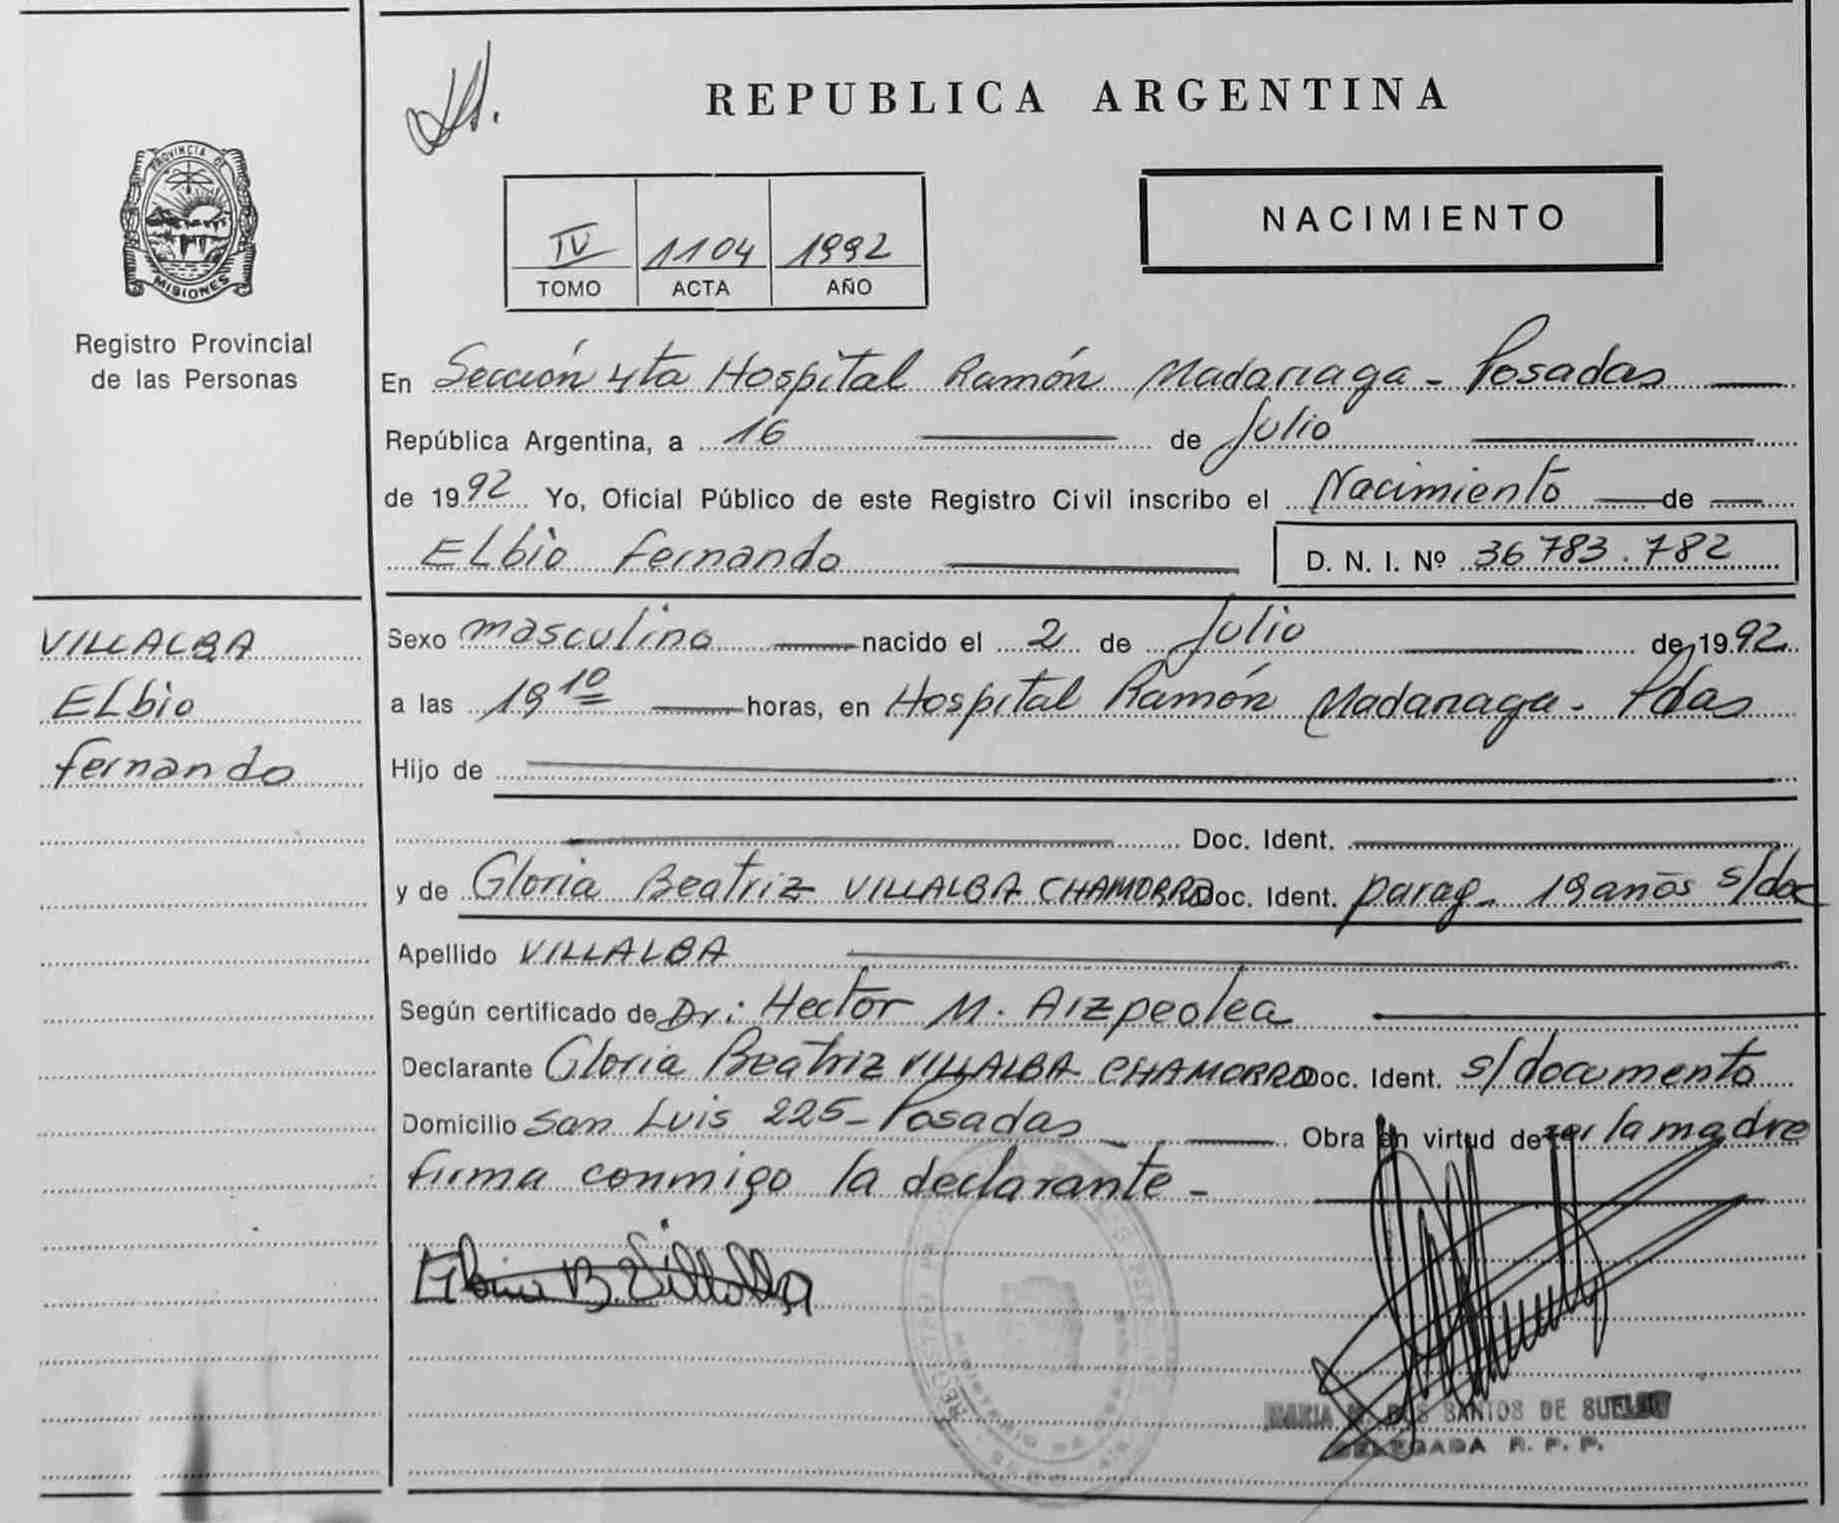 REPUBLICA ARGENTINA
PROVINCIA DE
MISIONES
Registro Provincial
de las Personas
IV 1104 1992
TOMO ACTA AÑO
NACIMIENTO
En Sección 4ta Hospital Ramón Madariaga - Posadas
República Argentina, a 16 de Julio
de 1992 Yo, Oficial Público de este Registro Civil inscribo el Nacimiento de
ELbio Fernando D. N. I. Nº 36783.782
VILLALBA
ELbio
Fernando
Sexo masculino nacido el 2 de Julio de 1992
a las 19 10 horas, en Hospital Ramón Madariaga - Pdas
Hijo de
Doc. Ident.
y de Gloria Beatriz VILLALBA CHAMORRO Doc. Ident. parag- 19 años s/doc
Apellido VILLALBA
Según certificado de Dr: Hector M. Aizpeolea
Declarante Gloria Beatriz VILLALBA CHAMORRO Doc. Ident. s/documento
Domicilio San Luis 225 - Posadas Obra en virtud de ser la madre
firma conmigo la declarante -
Gloria B. Villalba
MARIA DOS SANTOS DE
DELEGADA R. P. P.